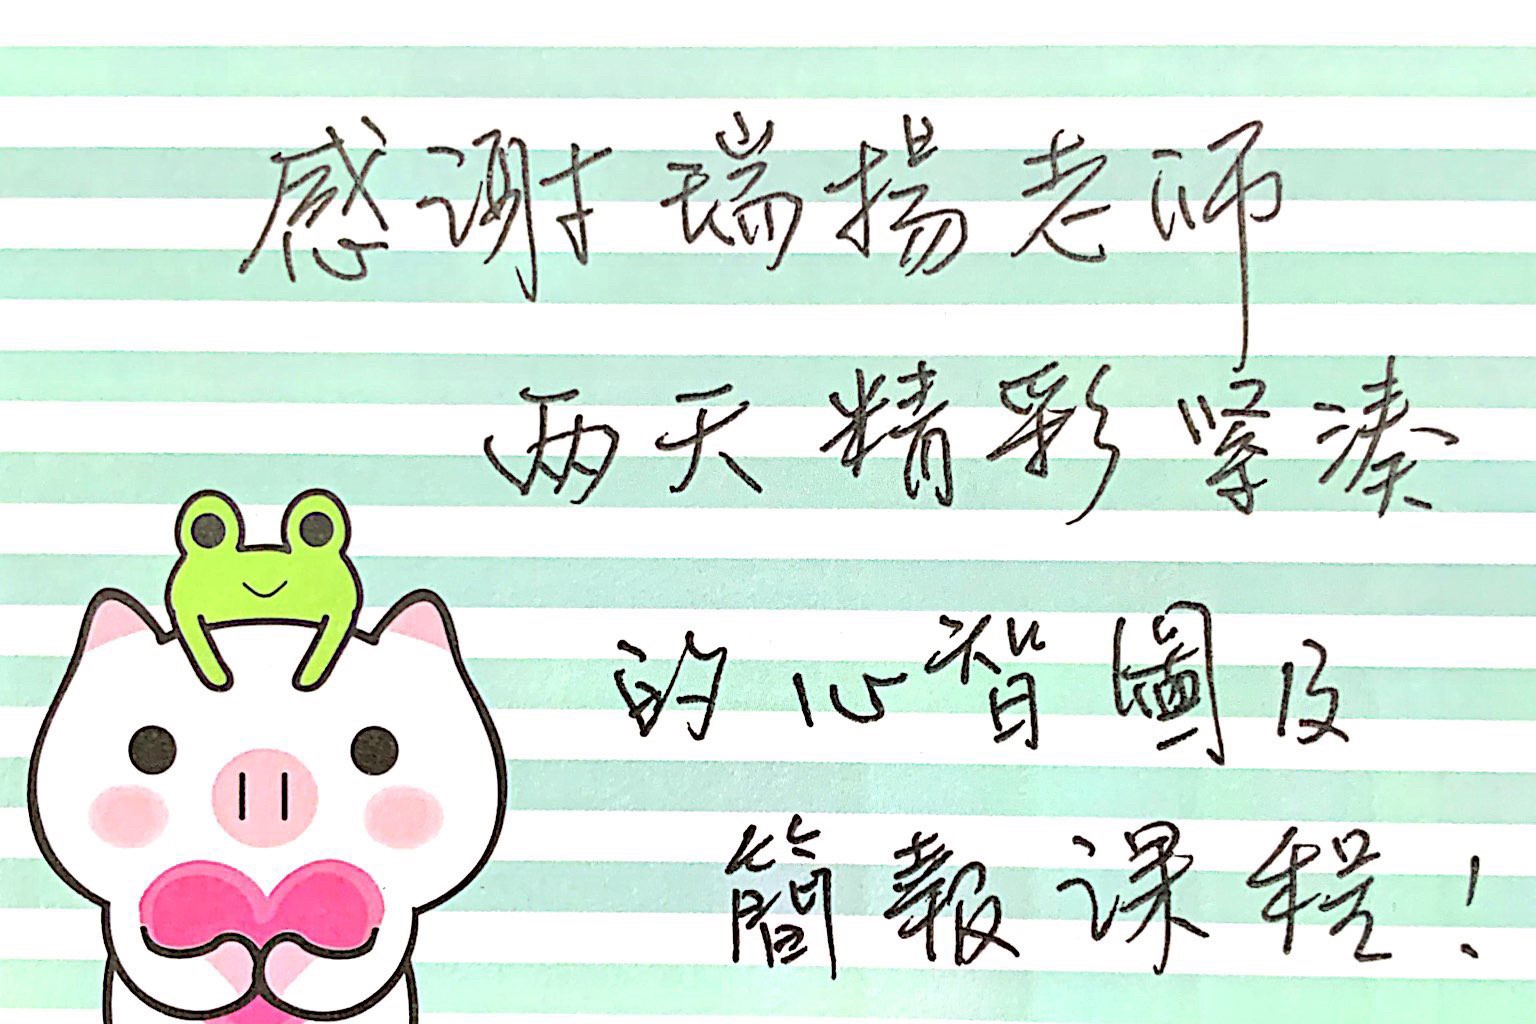 感谢瑞揚老师
两天精彩紧凑
的心智圖及
簡報课程！